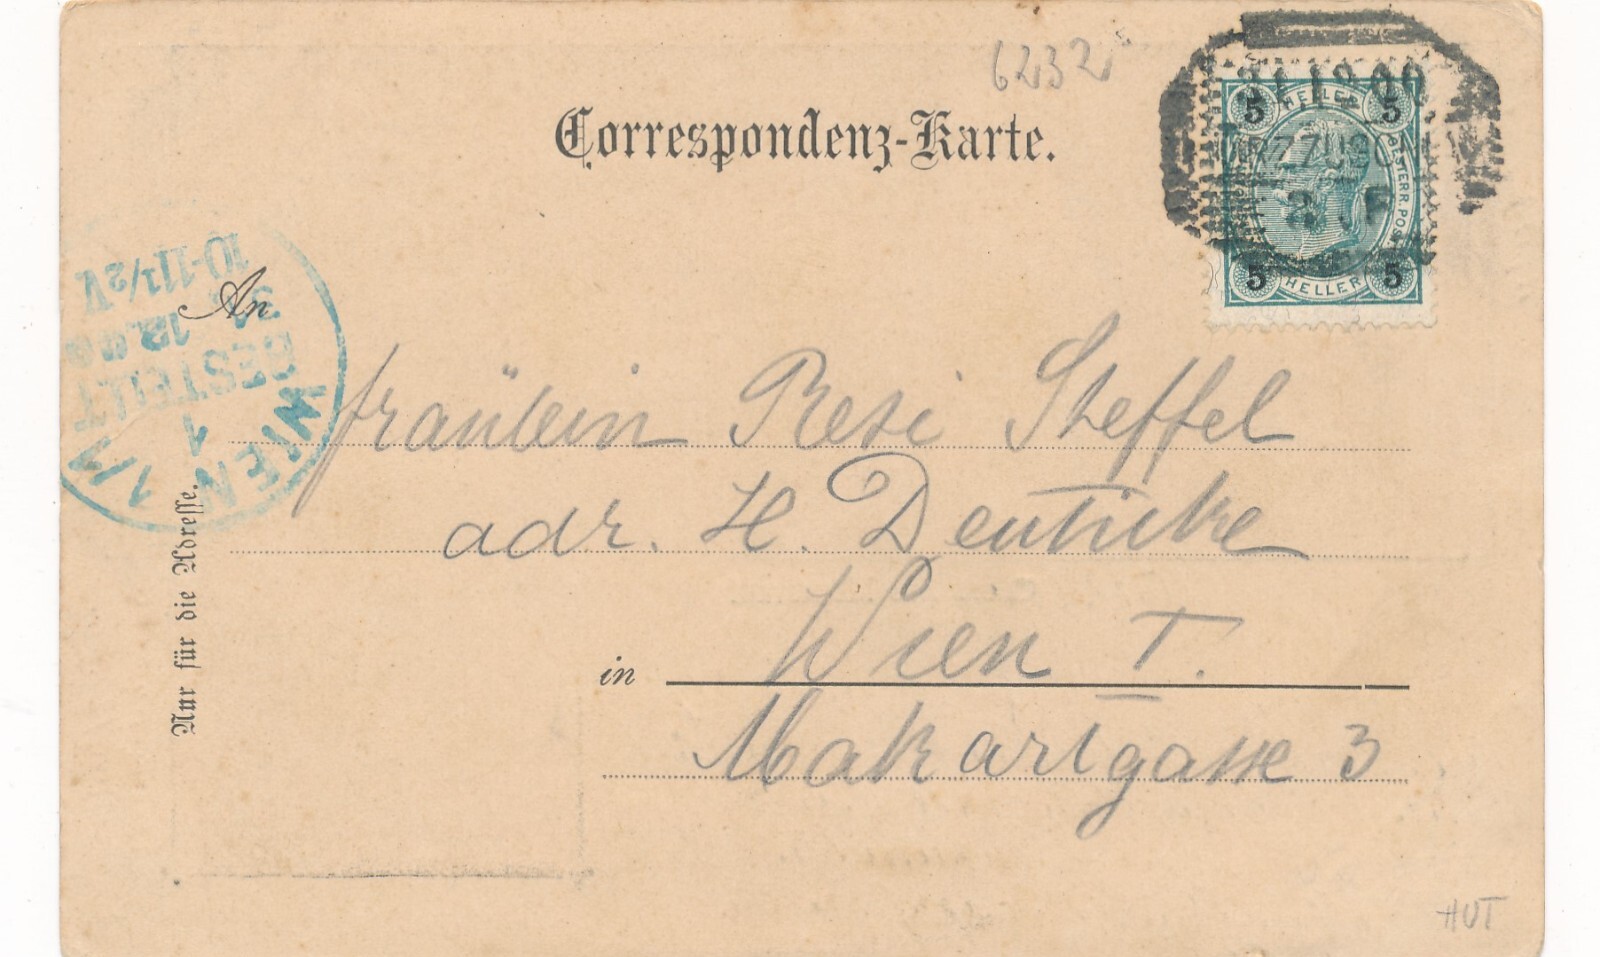 6232
Correspondenz-Karte.
5 HELLER 5
OESTERR. POST
5 HELLER 5
WIEN 1/1
1
BESTELLT
31
12.00
10-11½V
An
Fräulein Resi Steffel
adr. H. Deuticke
in Wien I.
Makartgasse 3
Nur für die Adresse.
HUT